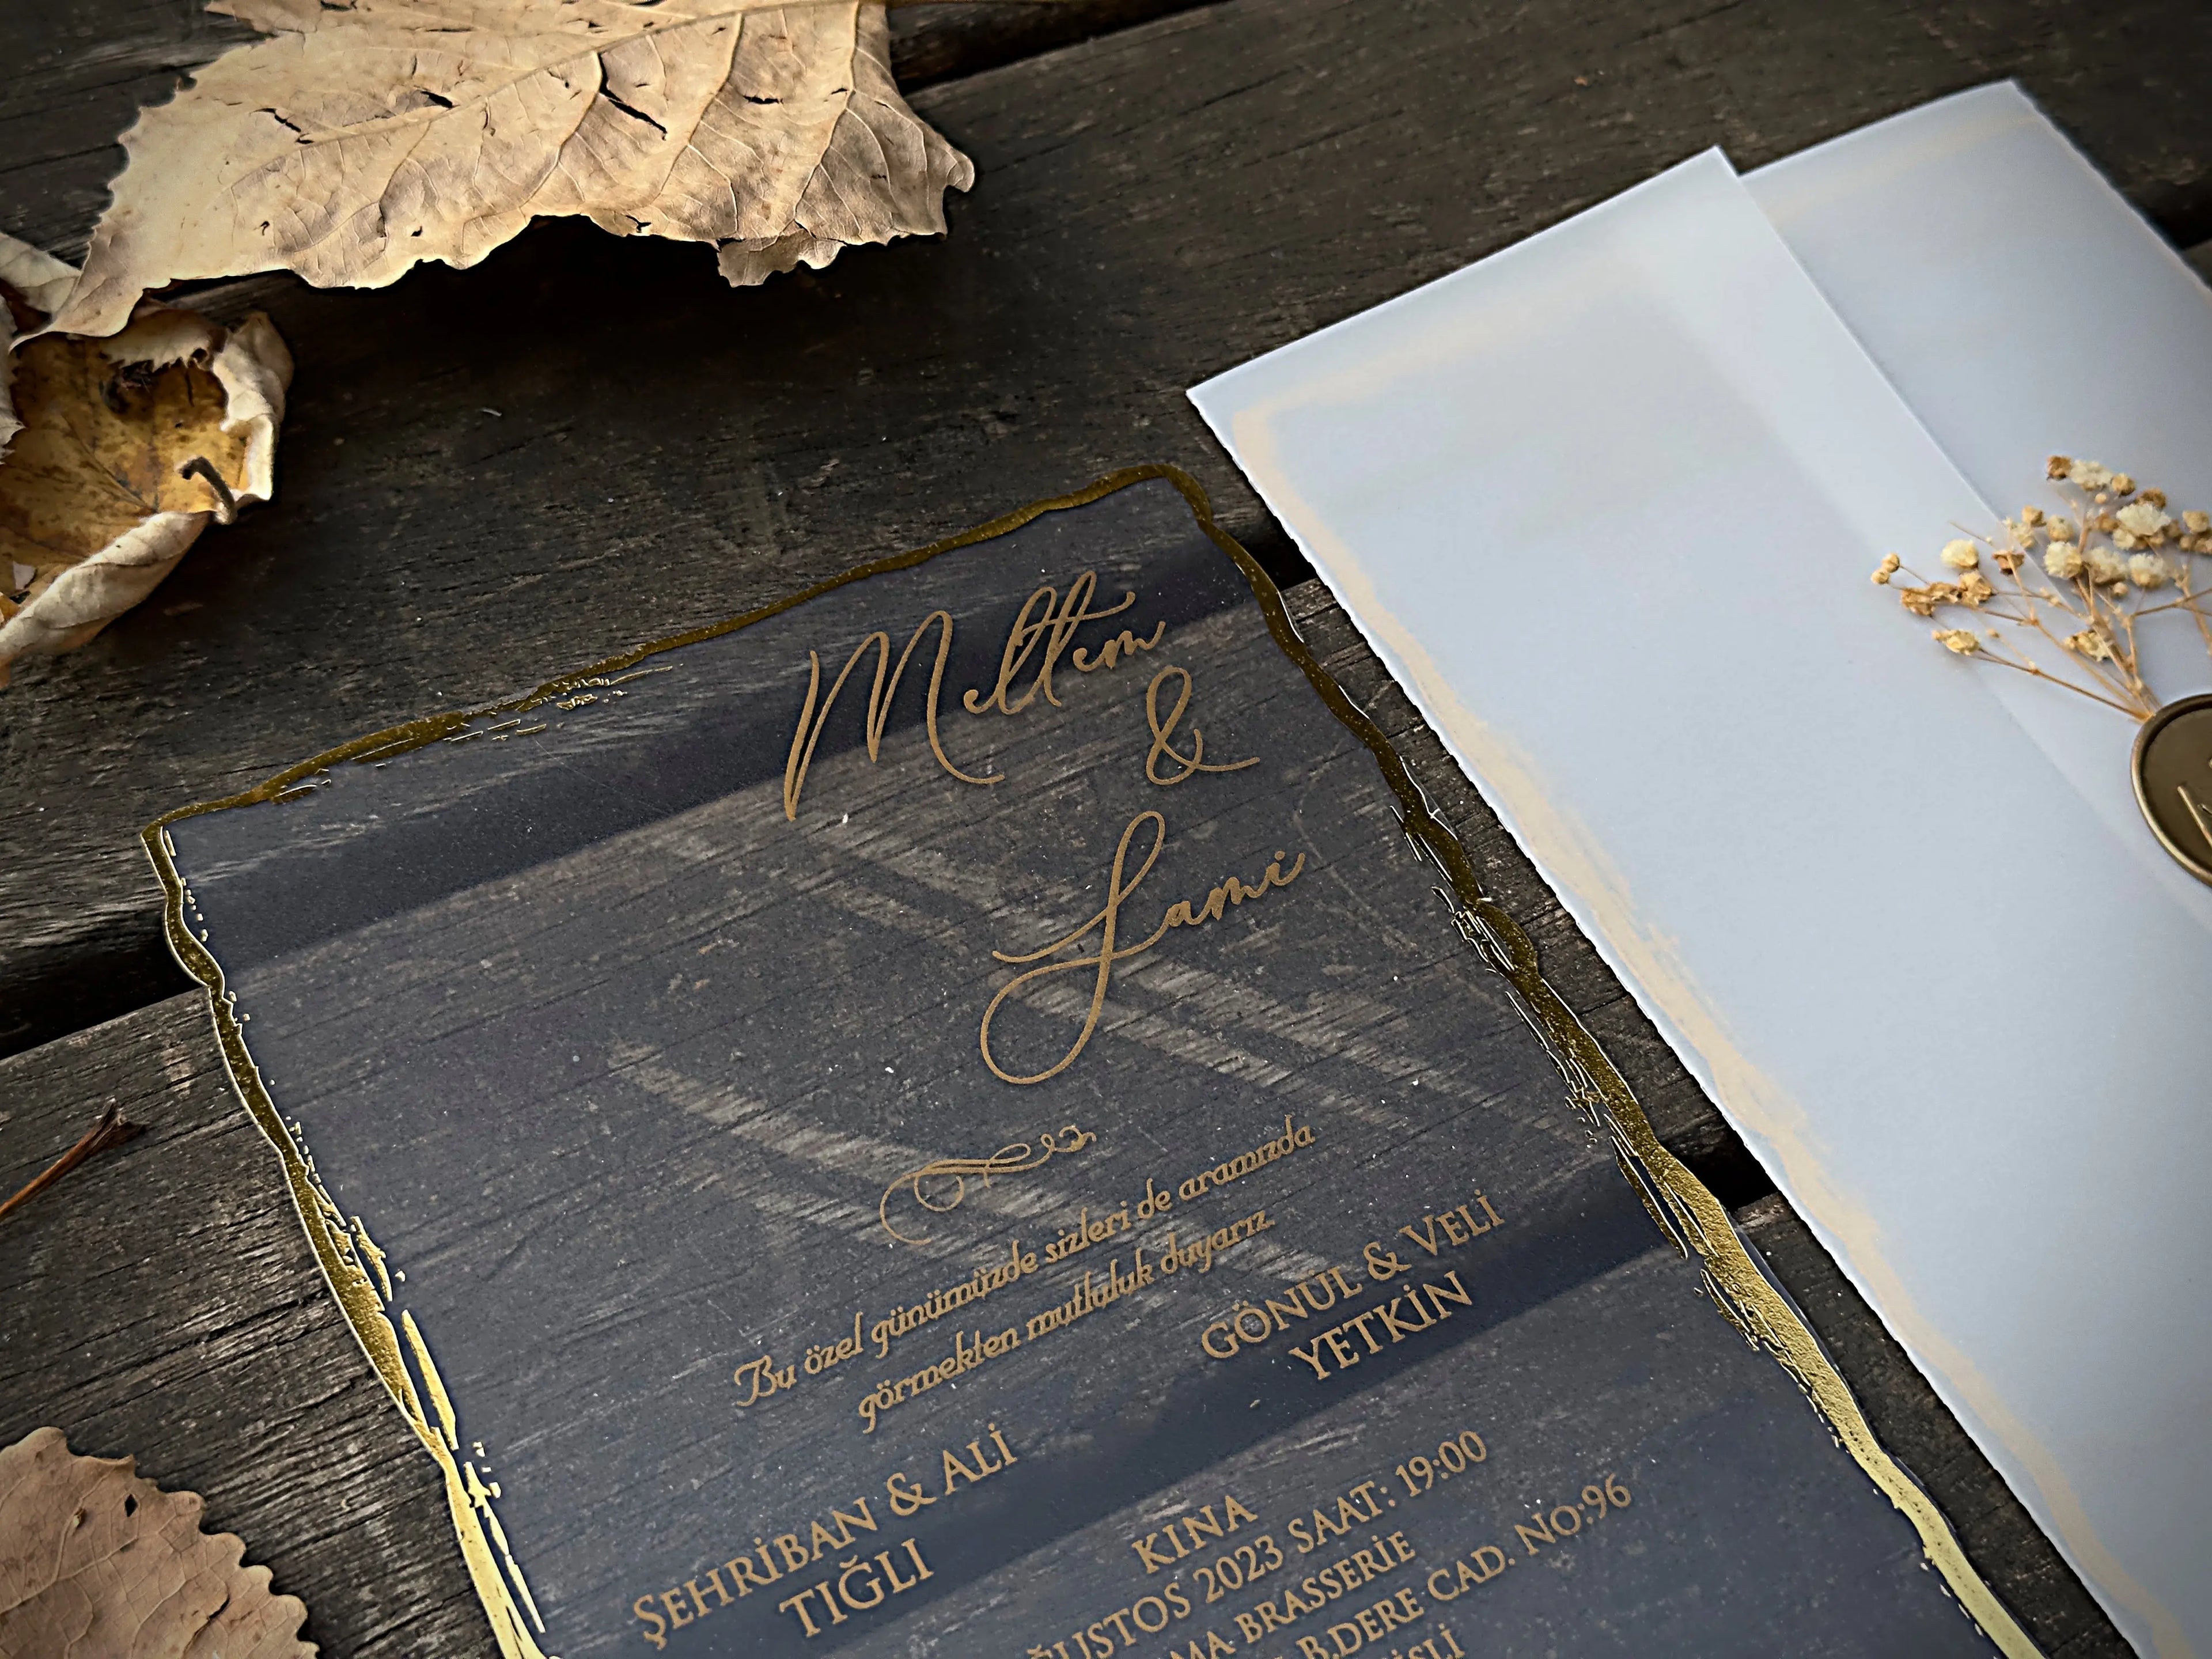 Meltem
&
Sami
Bu özel günümüzde sizleri de aramızda
görmekten mutluluk duyarız.
ŞEHRİBAN & ALİ
TIĞLI
GÖNÜL & VELİ
YETKİN
KINA
2023 SAAT: 19:00
BRASSERIE
B.DERE CAD. NO:96